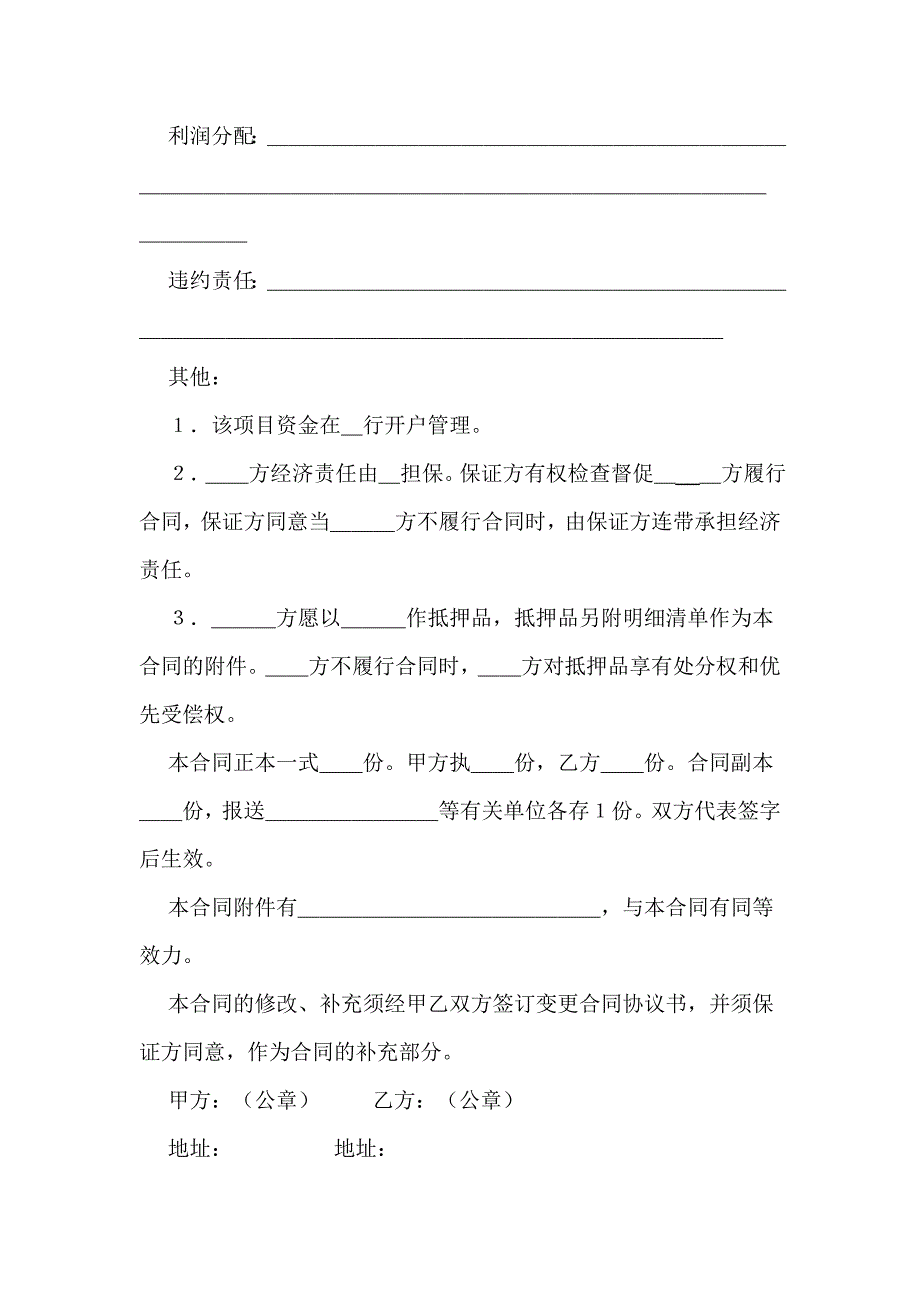 利润分配：________________________________________________
__________________________________________________________
__________
违约责任：________________________________________________
______________________________________________________
其他：
１．该项目资金在__行开户管理。
２．____方经济责任由__担保。保证方有权检查督促______方履行
合同，保证方同意当______方不履行合同时，由保证方连带承担经济
责任。
３．______方愿以______作抵押品，抵押品另附明细清单作为本
合同的附件。____方不履行合同时，____方对抵押品享有处分权和优
先受偿权。
本合同正本一式____份。甲方执____份，乙方____份。合同副本
____份，报送________________等有关单位各存１份。双方代表签字
后生效。
本合同附件有____________________________，与本合同有同等
效力。
本合同的修改、补充须经甲乙双方签订变更合同协议书，并须保
证方同意，作为合同的补充部分。
甲方：（公章）　　　乙方：（公章）
地址：　　　　　地址：